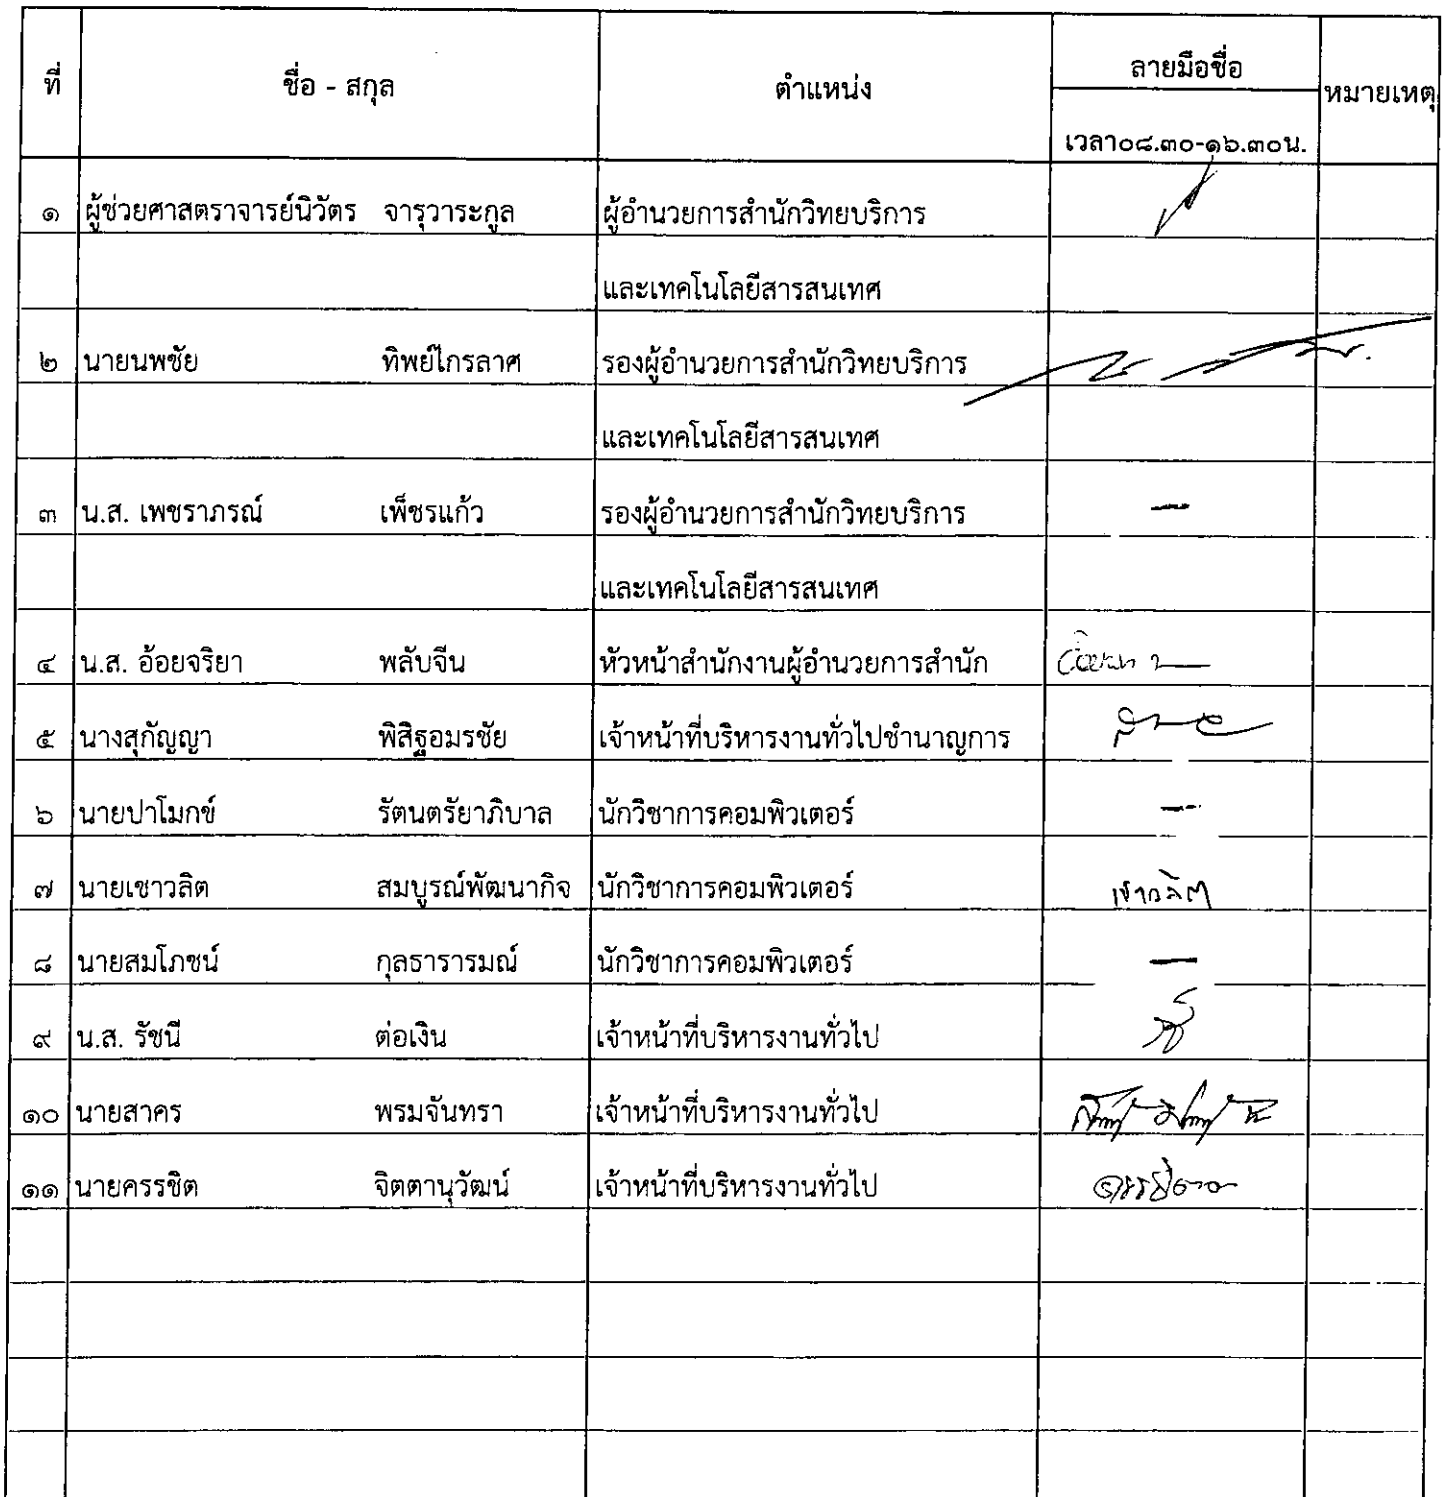 ที่ ชื่อ - สกุล ตำแหน่ง ลายมือชื่อ หมายเหตุ
เวลา๐๘.๓๐-๑๖.๓๐น.
๑ ผู้ช่วยศาสตราจารย์นิวัตร จารุวาระกูล ผู้อำนวยการสำนักวิทยบริการ
และเทคโนโลยีสารสนเทศ
๒ นายนพชัย ทิพย์ไกรลาศ รองผู้อำนวยการสำนักวิทยบริการ
และเทคโนโลยีสารสนเทศ
๓ น.ส. เพชราภรณ์ เพ็ชรแก้ว รองผู้อำนวยการสำนักวิทยบริการ —
และเทคโนโลยีสารสนเทศ
๔ น.ส. อ้อยจริยา พลับจีน หัวหน้าสำนักงานผู้อำนวยการสำนัก
๕ นางสุกัญญา พิสิฐอมรชัย เจ้าหน้าที่บริหารงานทั่วไปชำนาญการ
๖ นายปาโมกข์ รัตนตรัยาภิบาล นักวิชาการคอมพิวเตอร์ —
๗ นายเชาวลิต สมบูรณ์พัฒนากิจ นักวิชาการคอมพิวเตอร์ เชาวลิต
๘ นายสมโภชน์ กุลธารารมณ์ นักวิชาการคอมพิวเตอร์ —
๙ น.ส. รัชนี ต่อเงิน เจ้าหน้าที่บริหารงานทั่วไป
๑๐ นายสาคร พรมจันทรา เจ้าหน้าที่บริหารงานทั่วไป
๑๑ นายครรชิต จิตตานุวัฒน์ เจ้าหน้าที่บริหารงานทั่วไป